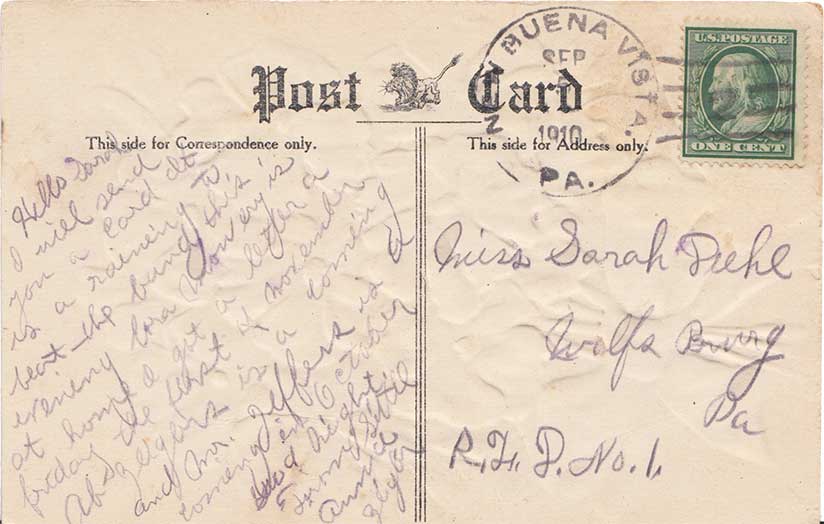 Post Card
This side for Correspondence only.
This side for Address only.
N BUENA VISTA.
SEP
1910
PA.
U.S. POSTAGE
ONE CENT
Hello Sarah
I will send
you a card it
is a raining to
beat the band this
evening Cora Mowery is
at home I got a letter a
friday the last of november
Ab Zeigers is a coming
and Mr. Jeffers is a
coming in October
Good Night
from
Anna
Miss Sarah Diehl
Wolfs Burg
Pa
R.F.D. No. 1.